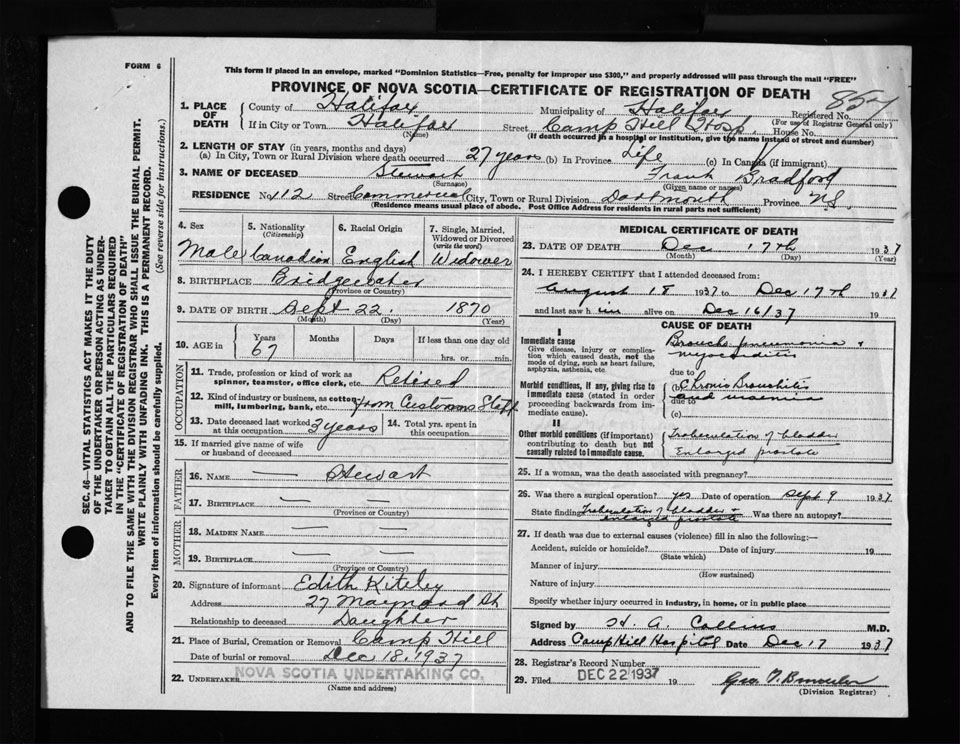 FORM 6
This form if placed in an envelope, marked "Dominion Statistics—Free, penalty for improper use $300," and properly addressed will pass through the mail "FREE"
PROVINCE OF NOVA SCOTIA—CERTIFICATE OF REGISTRATION OF DEATH
857
1. PLACE OF DEATH
County of Halifax
Municipality of Halifax
Registered No.
(For use of Registrar General only)
If in City or Town Halifax
(Name)
Street Camp Hill Hosp. House No.
(If death occurred in a hospital or institution, give the name instead of street and number)
2. LENGTH OF STAY (in years, months and days)
(a) In City, Town or Rural Division where death occurred 27 years (b) In Province Life (c) In Canada (if immigrant)
3. NAME OF DECEASED Stewart Frank Bradford
(Surname) (Given name or names)
RESIDENCE No. 112 Street Commercial (City, Town or Rural Division Dartmouth Province N.S.
(Residence means usual place of abode. Post Office Address for residents in rural parts not sufficient)
4. Sex
Male
5. Nationality
(Citizenship)
Canadian
6. Racial Origin
English
7. Single, Married, Widowed or Divorced
(write the word)
Widower
8. BIRTHPLACE Bridgewater
(Province or Country)
9. DATE OF BIRTH Sept 22 1870
(Month) (Day) (Year)
10. AGE in
Years
67
Months
Days
If less than one day old
hrs. or min.
OCCUPATION
11. Trade, profession or kind of work as
spinner, teamster, office clerk, etc. Retired
12. Kind of industry or business, as cotton
mill, lumbering, bank, etc. from Customs Staff
13. Date deceased last worked
at this occupation 3 years
14. Total yrs. spent in
this occupation
15. If married give name of wife
or husband of deceased
FATHER
16. NAME — Stewart
17. BIRTHPLACE — —
(Province or Country)
MOTHER
18. MAIDEN NAME — —
19. BIRTHPLACE — —
(Province or Country)
20. Signature of informant Edith Kiteley
Address 27 Maynard St
Relationship to deceased Daughter
21. Place of Burial, Cremation or Removal Camp Hill
Date of burial or removal Dec 18, 1937
22. UNDERTAKER NOVA SCOTIA UNDERTAKING CO.
(Name and address)
MEDICAL CERTIFICATE OF DEATH
23. DATE OF DEATH Dec 17th 1937
(Month) (Day) (Year)
24. I HEREBY CERTIFY that I attended deceased from:
August 18 1937 to Dec 17th 1937
and last saw him alive on Dec 16/37 19
CAUSE OF DEATH
I
Immediate cause
Give disease, injury or complication which caused death, not the mode of dying, such as heart failure, asphyxia, asthenia, etc.
Broncho pneumonia &
myocarditis
due to
Morbid conditions, if any, giving rise to immediate cause (stated in order proceeding backwards from immediate cause).
(b) Chronic Bronchitis
and uraemia
due to
(c)
II
Other morbid conditions (if important) contributing to death but not causally related to immediate cause.
Trabeculation of bladder
Enlarged prostate
25. If a woman, was the death associated with pregnancy?
26. Was there a surgical operation? yes Date of operation Sept 9 1937
State finding Trabeculation of bladder &
enlarged prostate Was there an autopsy?
27. If death was due to external causes (violence) fill in also the following:—
Accident, suicide or homicide? Date of injury 19
(State which)
Manner of injury
(How sustained)
Nature of injury
Specify whether injury occurred in industry, in home, or in public place
Signed by H. A. Collins M.D.
Address Camp Hill Hospital Date Dec 17 1937
28. Registrar's Record Number
29. Filed DEC 22 1937 19
Geo.
(Division Registrar)
SEC. 46—VITAL STATISTICS ACT MAKES IT THE DUTY
OF THE UNDERTAKER OR PERSON ACTING AS UNDERTAKER
TO OBTAIN ALL THE PARTICULARS REQUIRED
IN THE "CERTIFICATE OF REGISTRATION OF DEATH"
AND TO FILE THE SAME WITH THE DIVISION REGISTRAR WHO SHALL ISSUE THE BURIAL PERMIT.
WRITE PLAINLY WITH UNFADING INK. THIS IS A PERMANENT RECORD.
Every item of information should be carefully supplied. (See reverse side for instructions.)